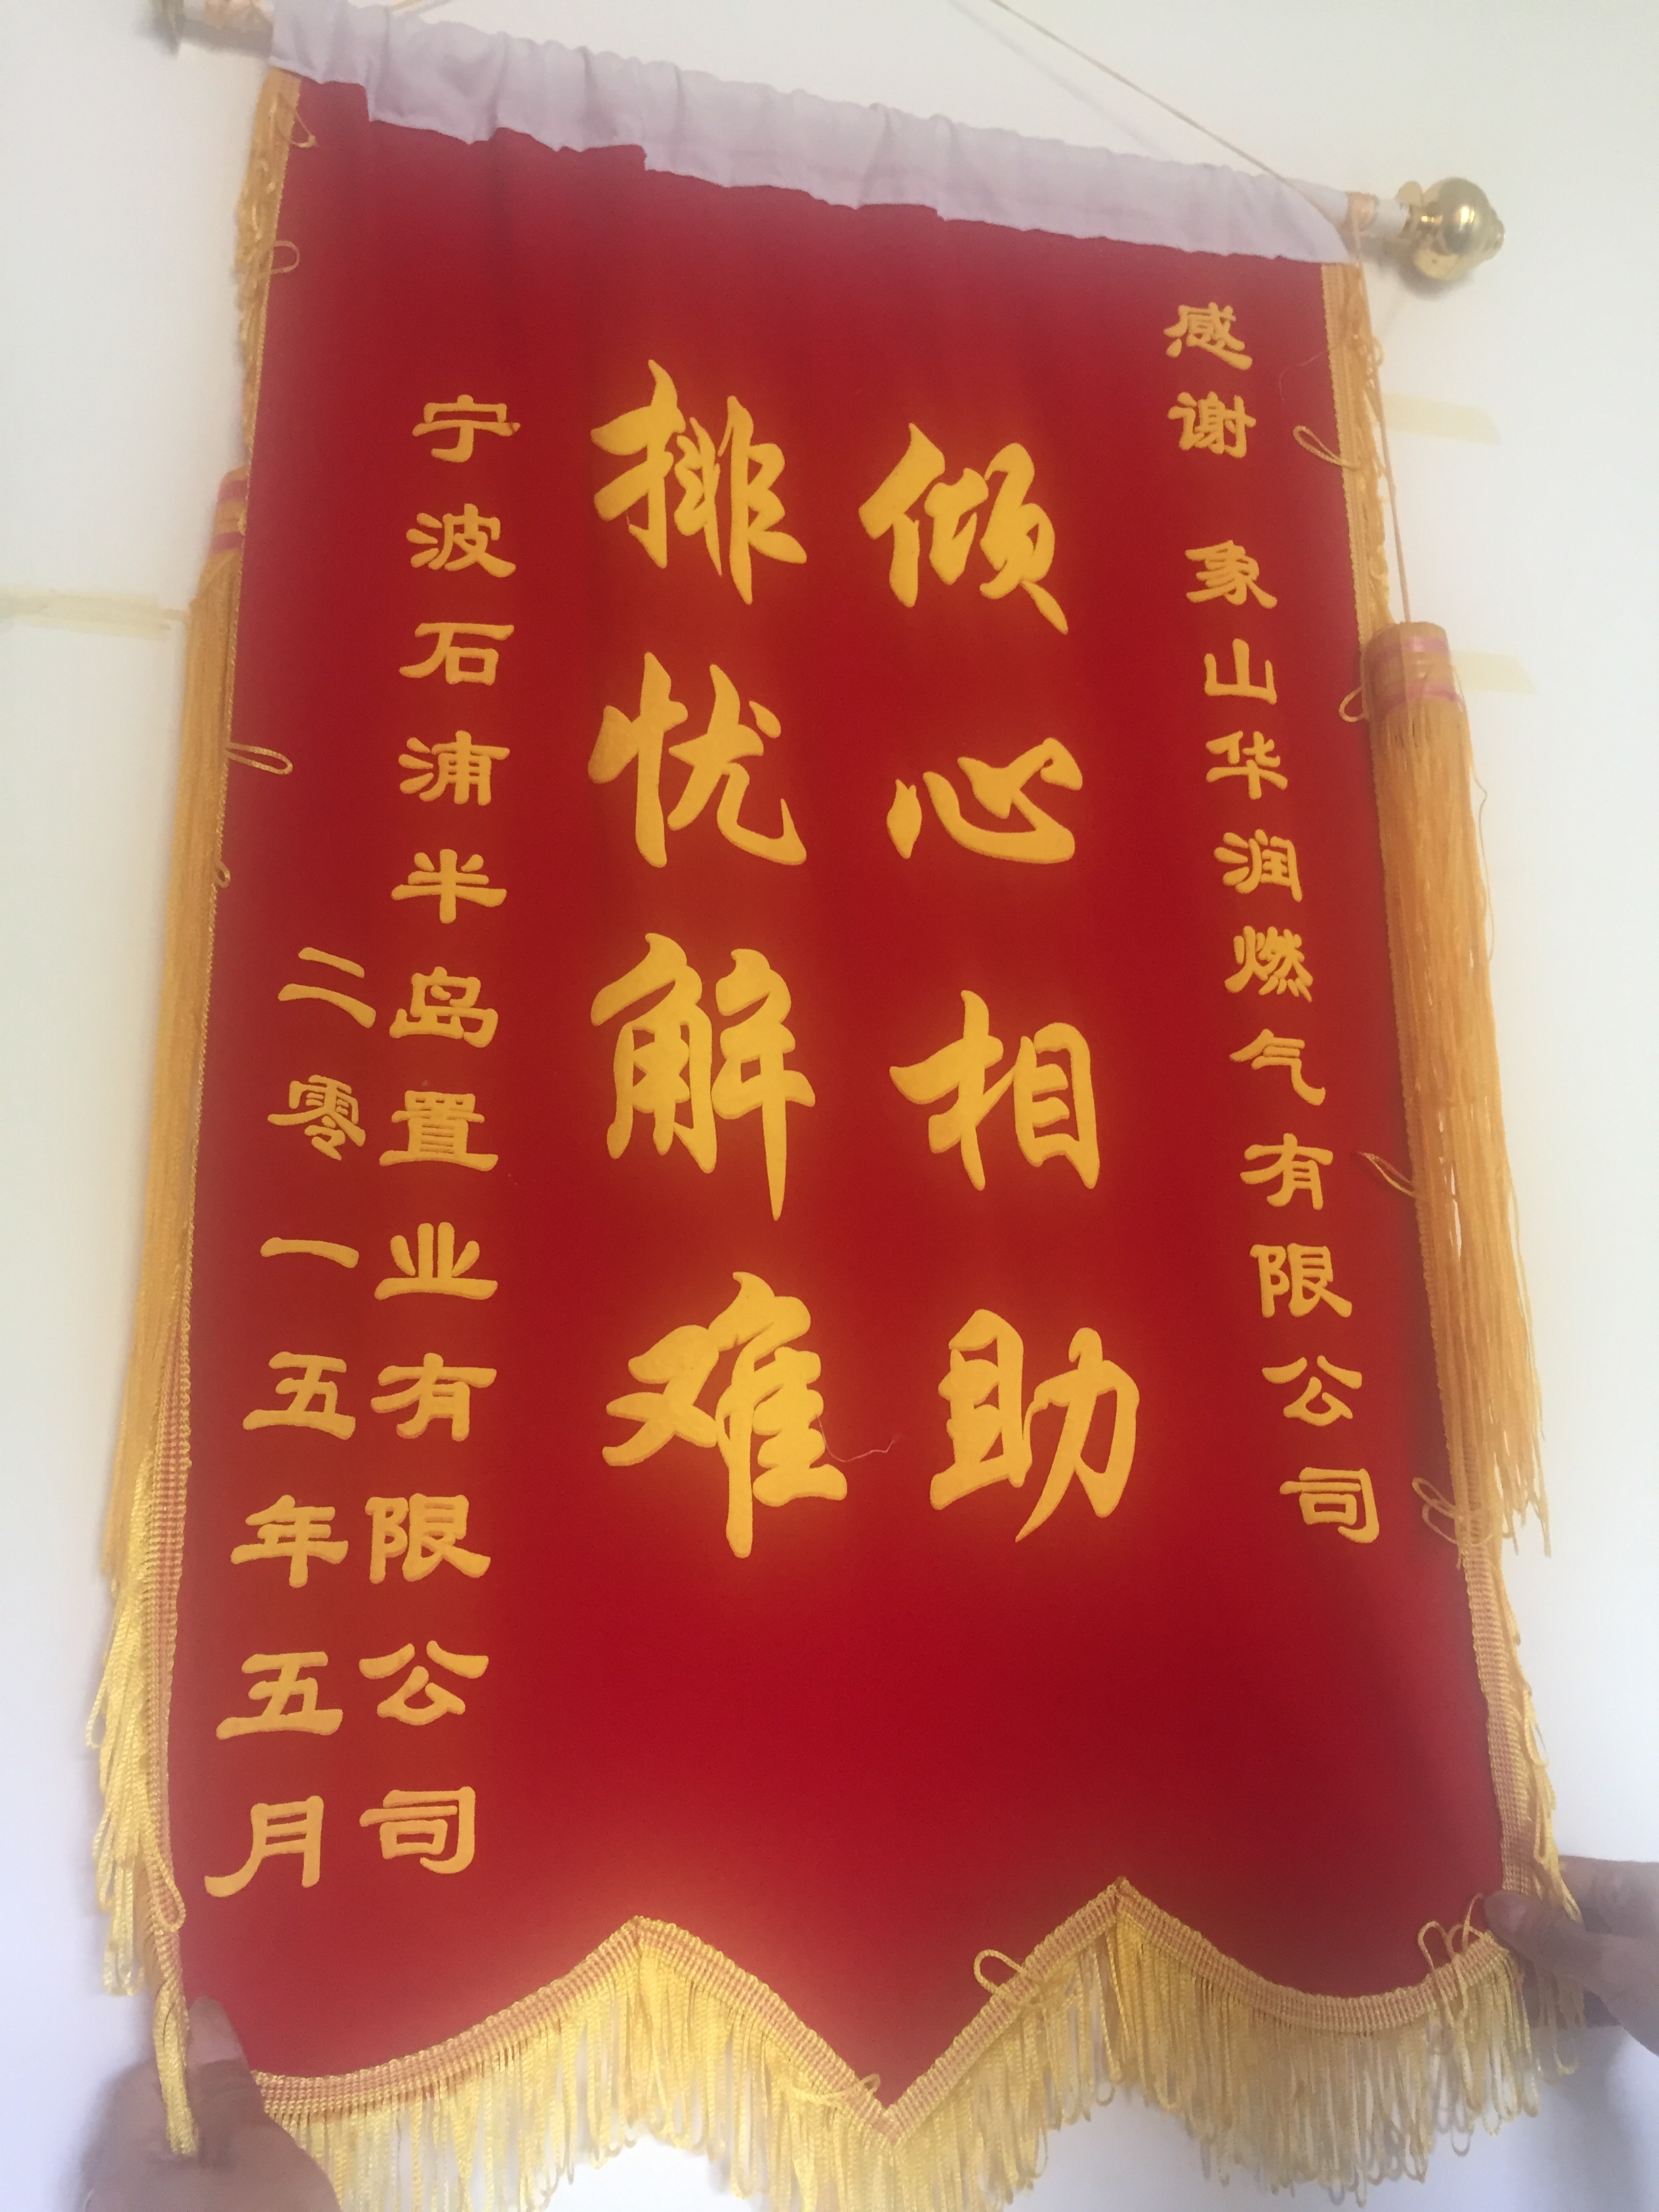 感谢 象山华润燃气有限公司
倾心相助
排忧解难
宁波石浦半岛置业有限公司
二零一五年五月